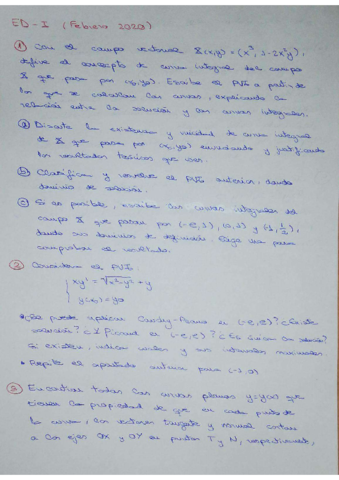 ED-I (Febrero 2020)
① Con el campo vectorial X(x,y) = (x³, 1-2x²y),
define el concepto de curva integral del campo
X que pasa por (x₀,y₀). Escribe el PVI a partir de
los que se calculan las curvas, explicando la
relación entre la solución y las curvas integrales.
ⓐ Discute la existencia y unicidad de curva integral
de X que pasa por (x₀,y₀) enunciando y justificando
los resultados teóricos que uses.
ⓑ Clasifica y resuelve el PVI anterior, dando
dominio de solución.
ⓒ Si es posible, escribe las curvas integrales del
campo X que pasan por (-e,1), (0,1) y (1,1/2),
dando sus dominios de definición. Elige una para
comprobar el resultado.
② Considera el PVI
xy' = y
y(x₀) = y₀
• Se puede aplicar Cauchy-Peano a (-e,e)? ¿Existe
solución? ¿Y Picard a (-e,e)? ¿Es única la solución?
Si existen, indica cuántas y sus intervalos maximales.
• Repite el apartado anterior para (-1,0)
③ Encontrar todas las curvas planas y=y(x) que
tienen la propiedad de que en cada punto de
la curva, los vectores tangente y normal cortan
a los ejes OX y OY en puntos T y N, respectivamente,